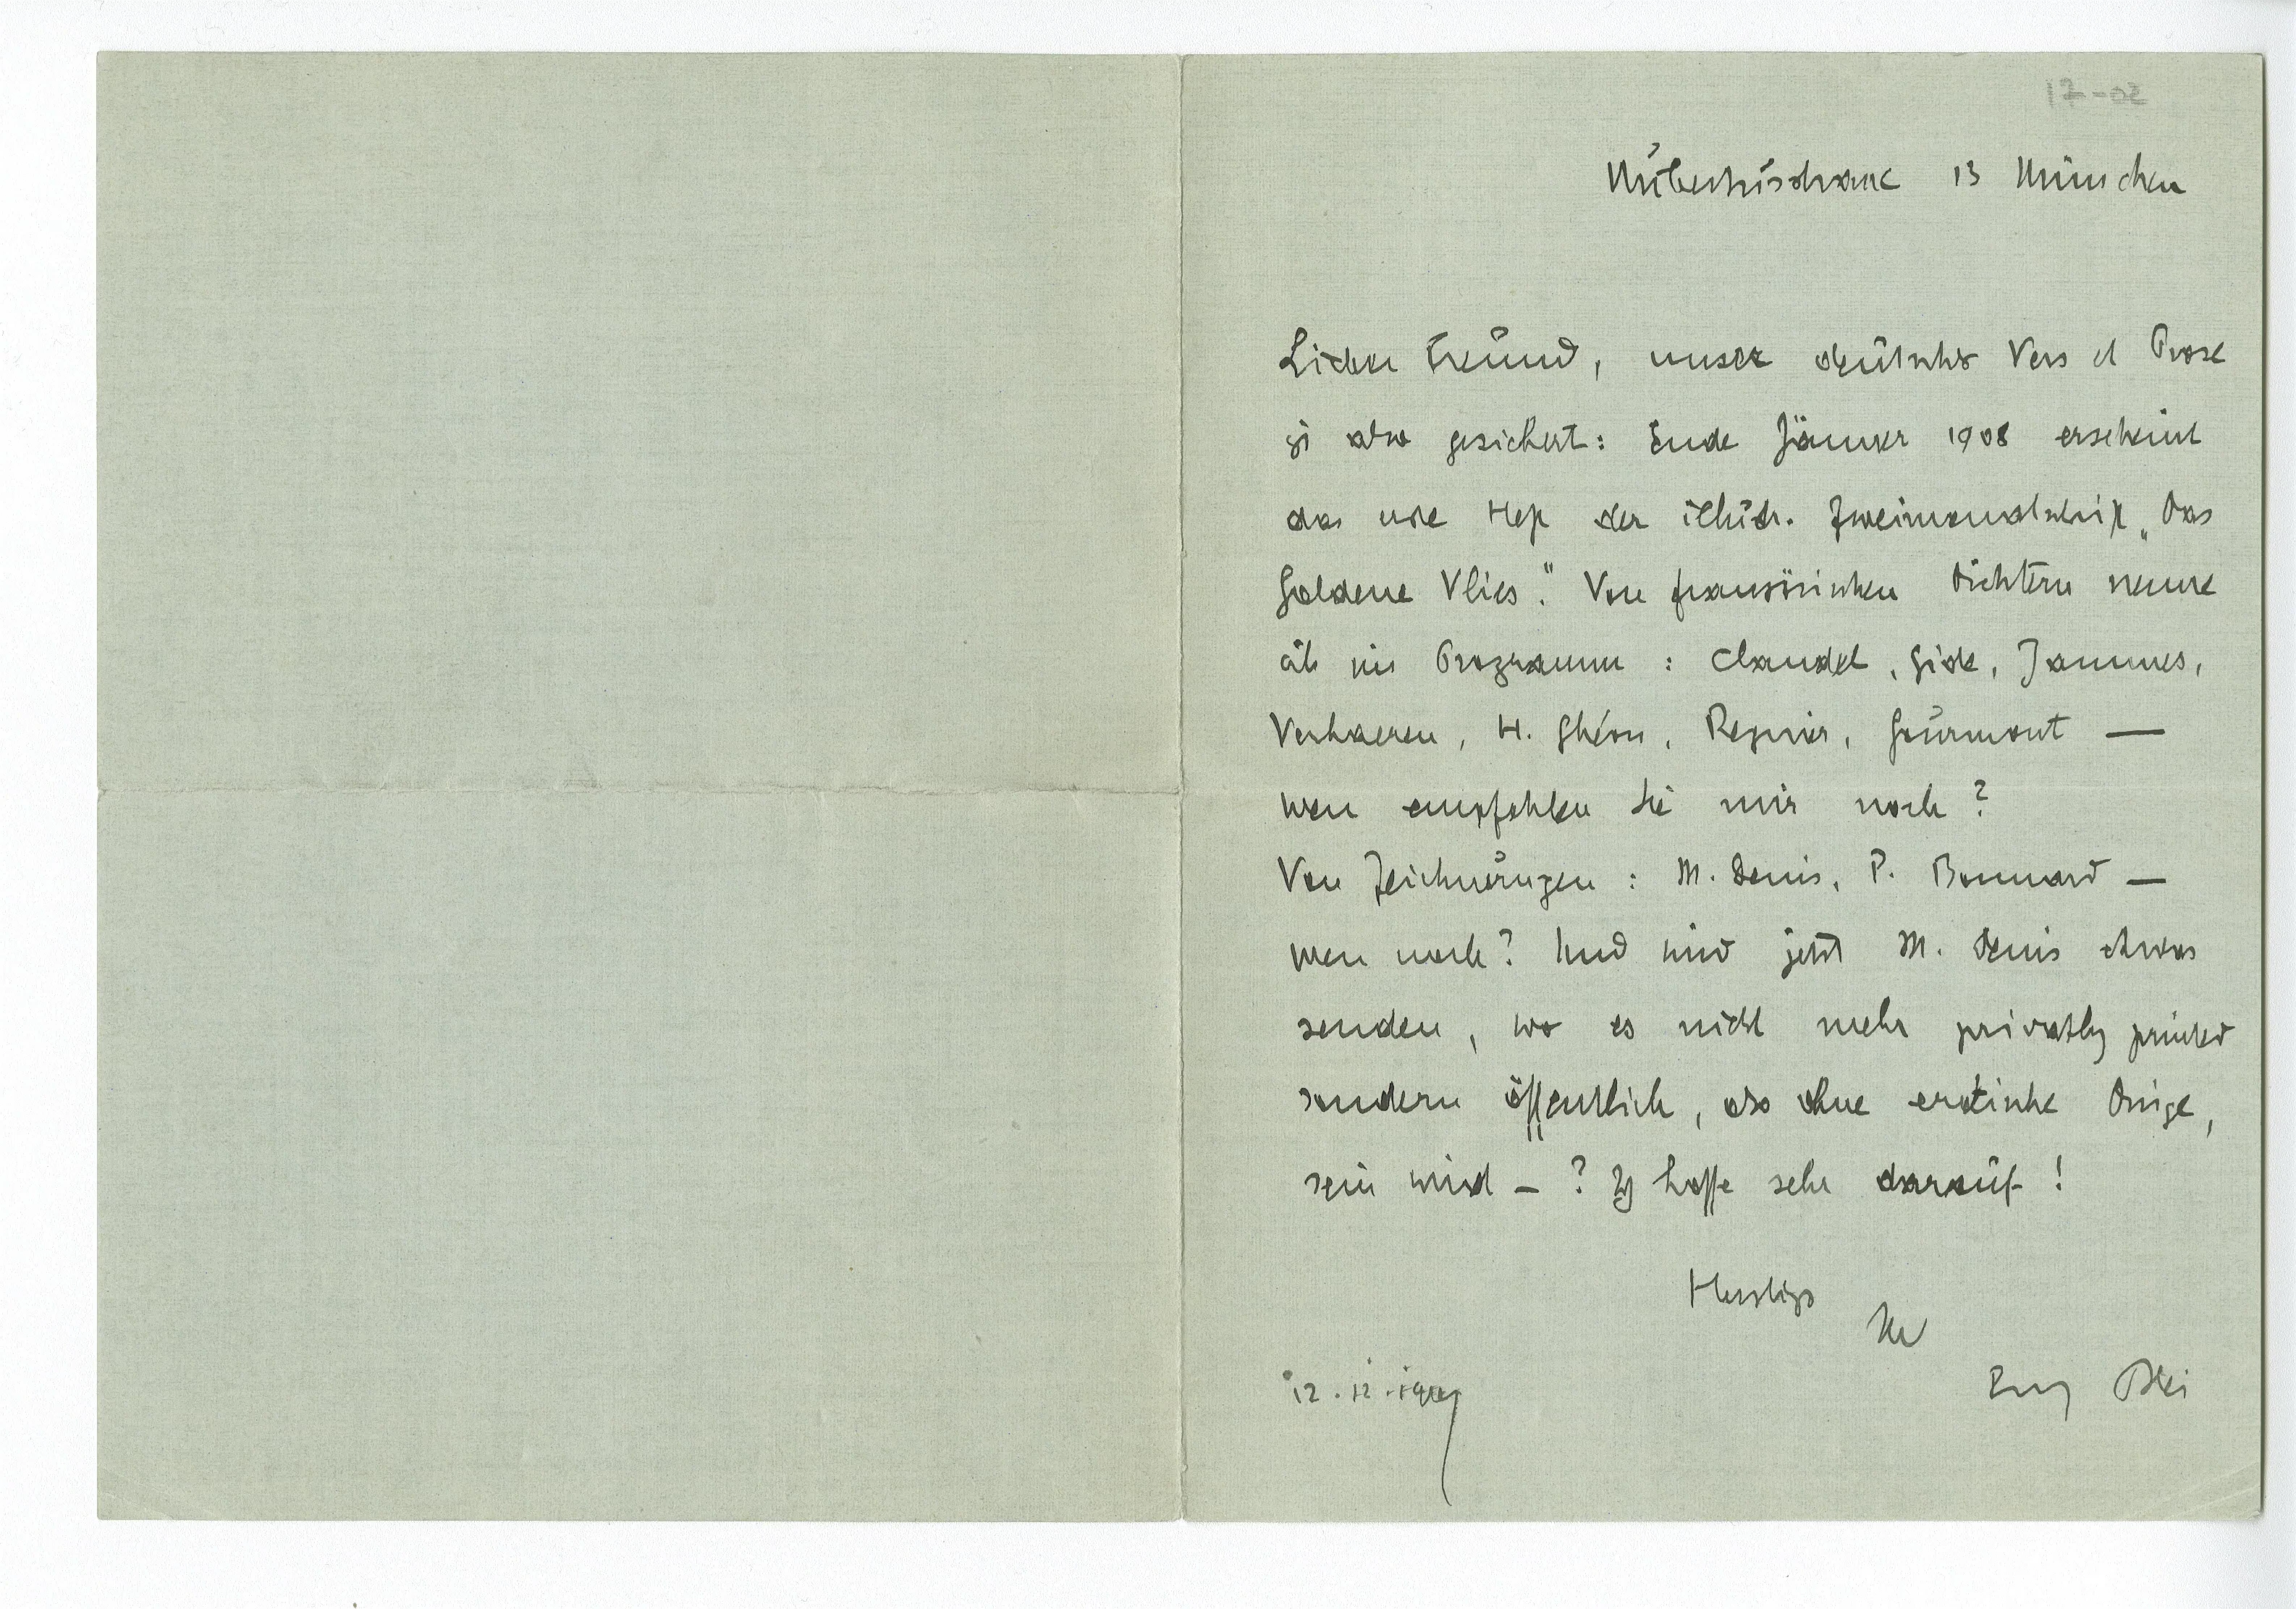 17-02
Hubertusstrasse 13 München
Lieber Freund, unser deutsches Vers et Prose
ist also gesichert: Ende Jänner 1908 erscheint
das erste Heft der illustr. Zweimonatschrift „Das
Goldene Vlies." Von französischen Dichtern nenne
ich im Programm : Claudel, Gide, Jammes,
Verhaeren, H. Ghéon, Regnier, Gourmont —
wen empfehlen Sie mir noch?
Von Zeichnungen : M. Denis, P. Bonnard —
wen noch? Und wird jetzt M. Denis etwas
senden, wo es nicht mehr privatly printed
sondern öffentlich, also ohne erotische Dinge,
sein wird – ? Ich hoffe sehr darauf!
Herzligst
Ihr
12.12.1907 Franz Blei